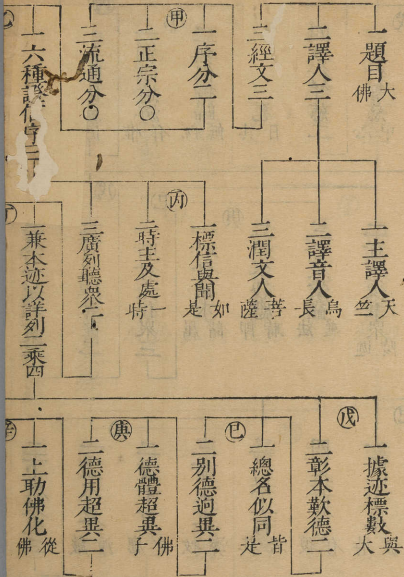 一題目 大佛
二譯人三
三經文三
甲
一序分二
二正宗分〇
三流通分〇
一六種證信序二
一主譯人 天竺
二譯音人 烏長
三潤文人 菩薩
丙
一標信與聞 如是
二時主及處 一時
三廣列聽衆二
丁
一兼本迹以詳列二乘四
戊
一據迹標數 與大
二彰本歎德二
巳
一總名似同 皆是
二別德迥異二
庚
一德體超異 佛子
二德用超異二
辛
一上助佛化 從佛